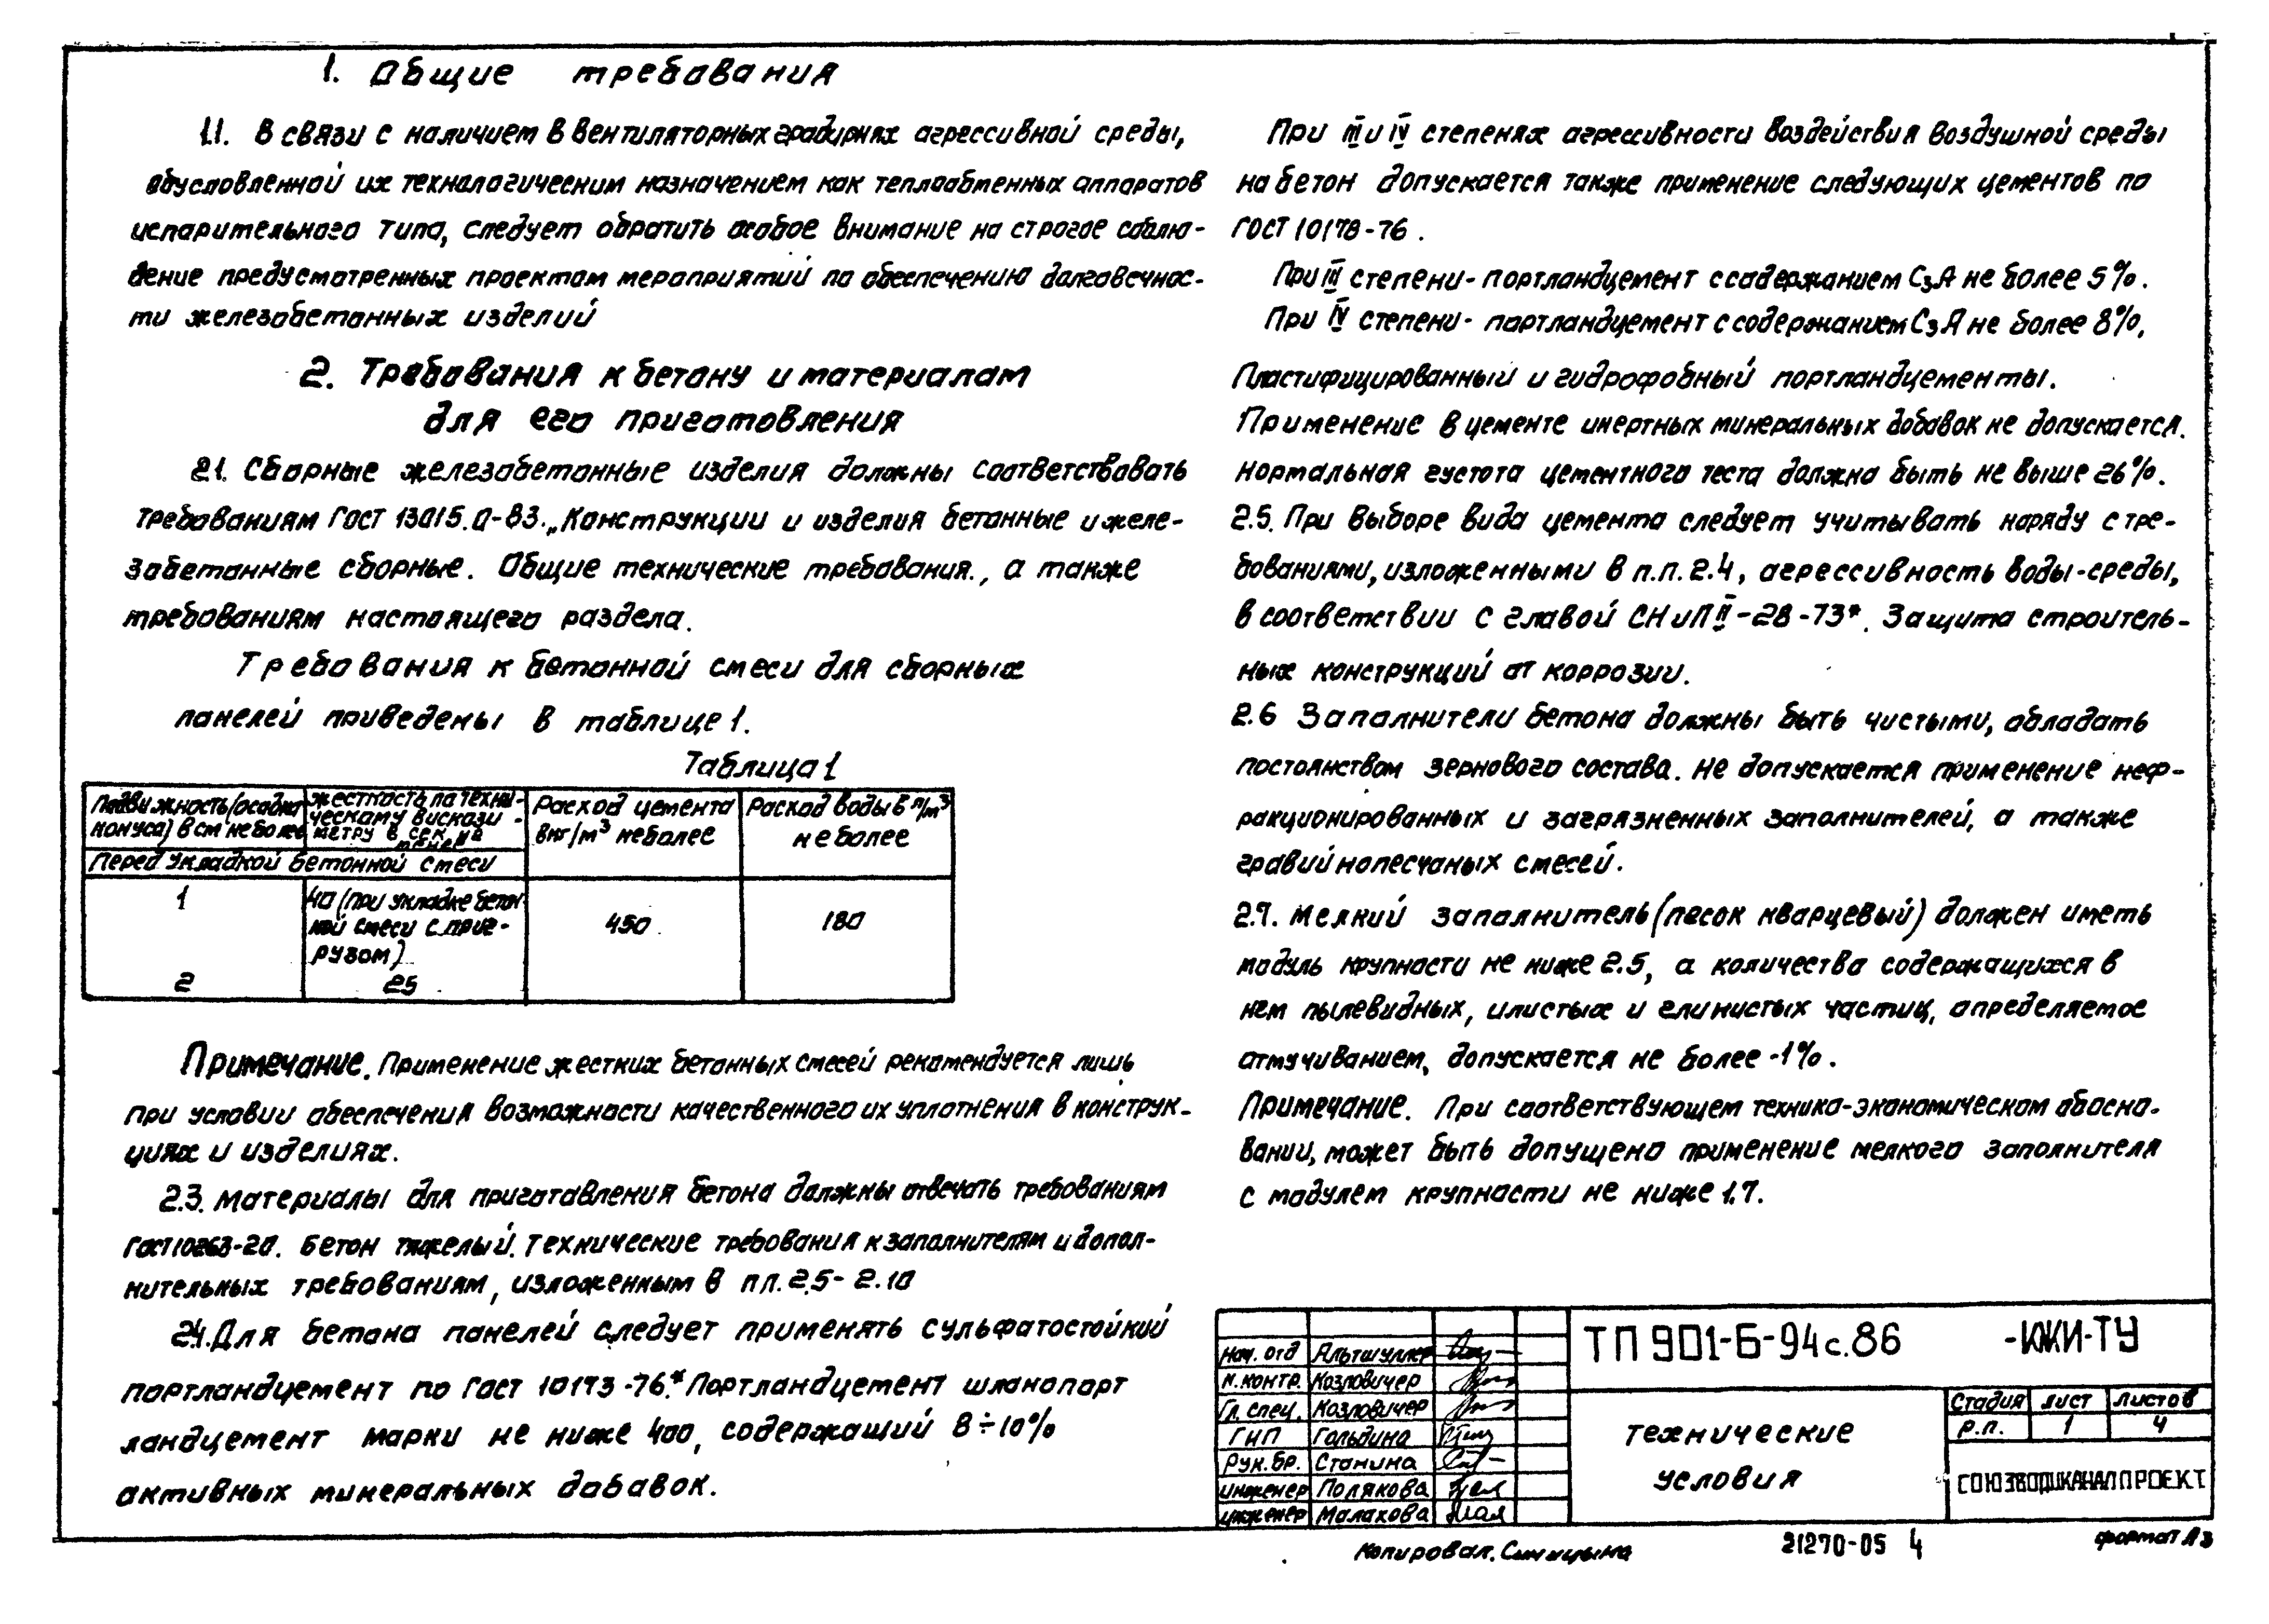 1. Общие требования
1.1. В связи с наличием в вентиляторных градирнях агрессивной среды,
обусловленной их технологическим назначением как теплообменных аппаратов
испарительного типа, следует обратить особое внимание на строгое соблю-
дение предусмотренных проектом мероприятий по обеспечению долговечнос-
ти железобетонных изделий
2. Требования к бетону и материалам
для его приготовления
2.1. Сборные железобетонные изделия должны соответствовать
требованиям ГОСТ 13015.0-83.„Конструкции и изделия бетонные и желе-
зобетонные сборные. Общие технические требования., а также
требованиям настоящего раздела.
Требования к бетонной смеси для сборных
панелей приведены в таблице 1.
Таблица 1
Подвижность (осадка
конуса) в см не более
жесткость по техни-
ческому вискози-
метру в сек, не
менее
Расход цемента
в кг/м³ не более
Расход воды в л/м³
не более
Перед укладкой бетонной смеси
1
40 (при укладке бетон
ной смеси с приг-
рузом)
450
180
2
25
Примечание. Применение жестких бетонных смесей рекомендуется лишь
при условии обеспечения возможности качественного их уплотнения в конструк-
циях и изделиях.
2.3. Материалы для приготовления бетона должны отвечать требованиям
ГОСТ 10263-20. Бетон тяжелый. Технические требования к заполнителям и допол-
нительных требованиям, изложенным в п.п. 2.5- 2.10
2.4. Для бетона панелей следует применять сульфатостойкий
портландцемент по ГОСТ 10173-76.* Портландцемент шлакопорт
ландцемент марки не ниже 400, содержащий 8÷10%
активных минеральных добавок.
При III и IV степенях агрессивности воздействия воздушной среды
на бетон допускается также применение следующих цементов по
ГОСТ 10178-76.
При III степени- портландцемент с содержанием С₃А не более 5%.
При IV степени- портландцемент с содержанием С₃А не более 8%,
Пластифицированный и гидрофобный портландцементы.
Применение в цементе инертных минеральных добавок не допускается.
Нормальная густота цементного теста должна быть не выше 26%.
2.5. При выборе вида цемента следует учитывать наряду с тре-
бованиями, изложенными в п.п. 2.4, агрессивность воды-среды,
в соответствии с главой СНиП II-28-73*. Защита строитель-
ных конструкций от коррозии.
2.6 Заполнители бетона должны быть чистыми, обладать
постоянством зернового состава. Не допускается применение неф-
ракционированных и загрязненных заполнителей, а также
гравийнопесчаных смесей.
2.7. Мелкий заполнитель (песок кварцевый) должен иметь
модуль крупности не ниже 2.5, а количества содержащихся в
нем пылевидных, илистых и глинистых частиц, определяемое
отмучиванием, допускается не более -1%.
Примечание. При соответствующем технико-экономическом обосно-
вании, может быть допущено применение мелкого заполнителя
с модулем крупности не ниже 1.7.
ТП 901-6-94с.86 -КЖИ-ТУ
Нач. отд Альтшуллер
Н. контр. Козловичер
Гл. спец. Козловичер
ГИП Гольдина
Рук. бр. Станина
инженер Полякова
инженер Малахова
Технические
условия
Стадия лист листов
Р.п. 1 4
СОЮЗВОДОКАНАЛПРОЕКТ
Копировал. Синицына
21270-05 4
формат А3